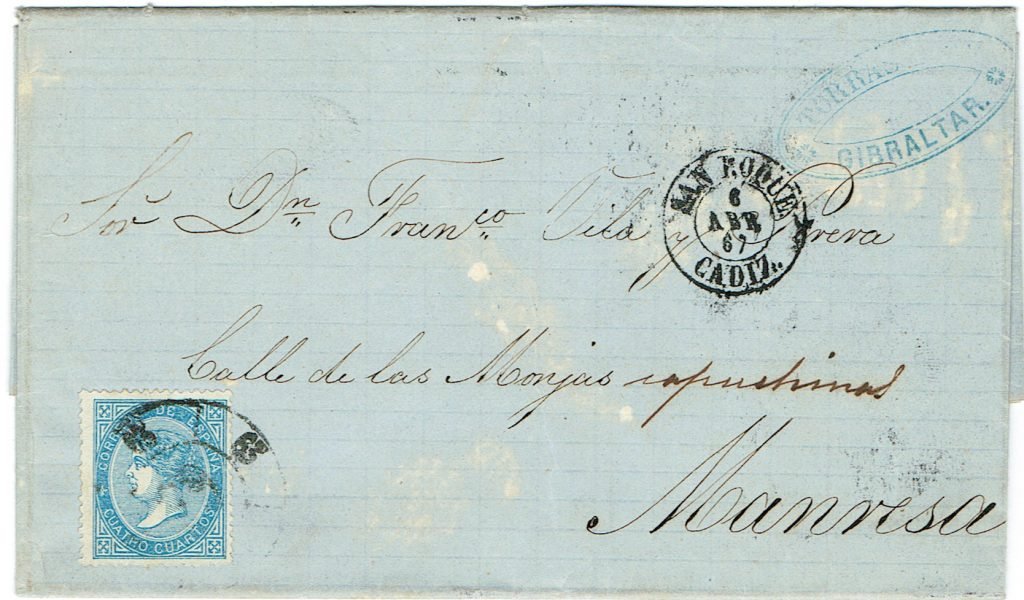 GIBRALTAR.
SAN ROQUE
6
ABR
67
CADIZ.
Sor Dn Franco. Vila y
Calle de las Monjas capuchinas
Manresa
CORREOS DE ESPAÑA
CUATRO CUARTOS